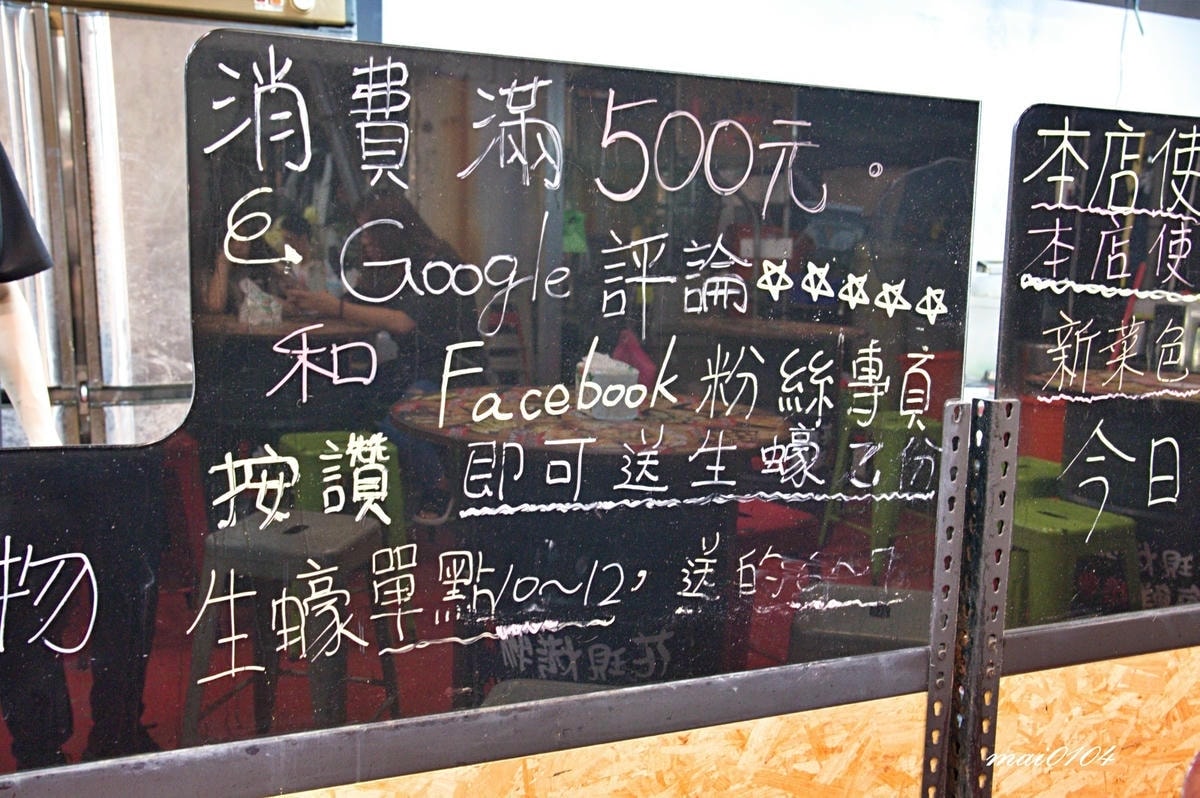 消費滿500元。
Google評論☆☆☆☆☆
和 Facebook粉絲專頁
按讚 即可送生蠔乙份
生蠔單點10~12,送的6~7
物
本店使
本店使
新菜色
今日
mai0104